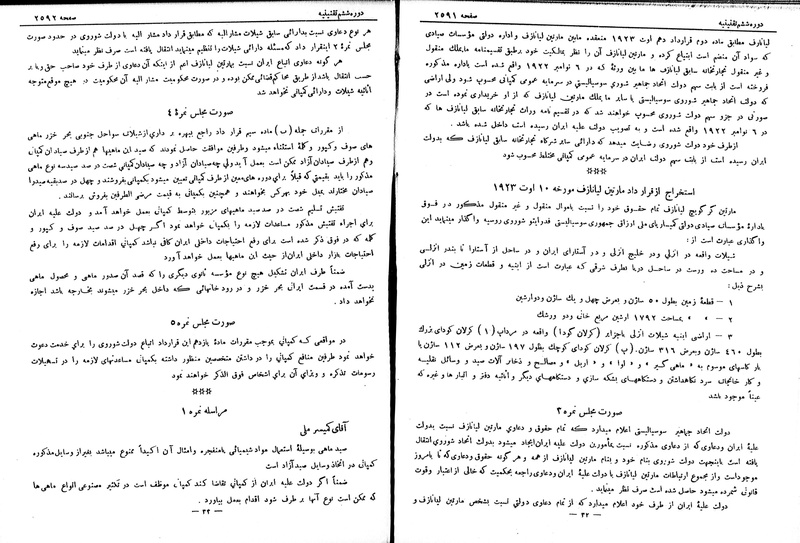 دوره ششم تقنینیه
صفحه ۲۵۹۱
لیانازف مطابق ماده دوم قرارداد دهم اوت ۱۹۲۳ منعقده مابین مارتین لیانازف و اداره دولتی مؤسسات صیادی
که سواد آن منضم است ابتیاع کرده و مارتین لیانازف آن را نظر بمالکیت خود برطبق تقسیمنامه مایملک منقول
و غیر منقول تجارتخانه سابق لیانازف ها مابین ورثة که در ۶ نوامبر ۱۹۲۲ واقع شده است باداره مذکوره
فروخته است از بابت سهم دولت اتحاد جماهیر شوروی سوسیالیستی در سرمایه عمومی کمپانی محسوب شود ولی اراضی
که دولت اتحاد جماهیر شوروی سوسیالیستی یا سایر مایملک مارتین لیانازف که از او خریداری نموده است در
صورتی در جزو سهم دولت شوروی محسوب خواهند شد که در تقسیم نامه وراث تجارتخانه سابق لیانازف ها که
در ۶ نوامبر ۱۹۲۲ واقع شده است و به تصویب دولت علیه ایران رسیده است داخل شده باشد .
ازطرف خود دولت شوروی رضایت میدهد که دارائی سایر شرکاء تجارتخانه سابق لیانازف که بدولت
ایران رسیده است از بابت سهم دولت ایران در سرمایه عمومی کمپانی مختلط محسوب شود
***
استخراج از قرارداد مارتین لیانازف مورخه ۱۰ اوت ۱۹۲۳
مارتین گرگوریچ لیانازف تمام حقوق خود را نسبت باموال منقول و غیر منقول مذکور در فوق
بادارۀ مؤسسات صیادی دولتی کمیساریای ملی ارزاق جمهوری سوسیالیستی فدراتیو شوروی روسیه واگذار مینماید این
واگذاری عبارت است از :
شیلات واقعه در انزلی ودر خلیج انزلی و در آستارای ایران و در ساحل از آستارا تا بندر انزلی
و در مساحت ده ورست در ساحل دریا بطرف شرقی که عبارت است از ابنیه و قطعات زمین در انزلی
بشرح ذیل :
۱ – قطعۀ زمین بطول ۵۰ ساژن و بعرض چهل و یک ساژن ودوارشین
۲ – » » بمساحت ۱۷۹۲ ارشین مربع خانی ودو ورشک
۳ – اراضی ابنیه شیلات انزلی باجزایر (کرلان کودا) واقعه در مرداب (۱) کرلان کودای بزرک
بطول ۴۶۰ ساژن وبعرض ۳۱۶ ساژن . (ب) کرلان کودای کوچک بطول ۱۹۷ ساژن و بعرض ۱۱۲ ساژن با
بار کاسهای موسوم به « ماهی گیر » و « اوا » و « اریل » و مصالح و ذخائر آلات صید و وسائل نقلیه
و کار خانجات سرد نگاهداشتن و دستگاههای بشکه سازی و دستگاههای دیگر و اثاثیه دفتر و انبارها و غیره که
عیناً موجود باشد
صورت مجلس نمره ۳
دولت اتحاد جماهیر سوسیالیستی اعلام میدارد که تمام حقوق و دعاوی مارتین لیانازف نسبت بدولت
علیۀ ایران ودعاوی که از دعاوی مذکوره نسبت بمأمورین دولت علیه ایران ایجاد میشود بدولت اتحاد شوروی انتقال
یافته است باینجهت دولت شوروی بنام خود و بنام مارتین لیانازف از همه و هر گونه حقوق ودعاوی که تا بامروز
موجوداست واز مجموع ارتباطات مارتین لیانازف با دولت علیۀ ایران ودعاوی راجعه بحکمیت که خالی از اعتبار وقوت
قانونی شمرده میشود حاصل شده است صرف نظر مینماید .
دولت علیۀ ایران از طرف خود اعلام میدارد که از تمام دعاوی دولتی نسبت بشخص مارتین لیانازف و
– ۳۲ –
دوره ششم تقنینیه
صفحه ۲۵۹۲
هر نوع دعاوی نسبت بدارائی سابق شیلات مشار الیه که مطابق قرار داد مشار الیه با دولت شوروی در حدود صورت
مجلس نمرۀ ۲ اینقرار داد که مسئله دارائی شیلات را تنظیم مینماید انتقال یافته است صرف نظر مینماید
هر گونه دعاوی اتباع ایران نسبت بمارتین لیانازف اعم از اینکه آن دعاوی از طرف خود صاحب حق ویا بر
حسب انتقال باشد از طریق محاکم قضائی ممکن بوده و در صورت محکومیت مشار الیه آن محکومیت در هیچ موقع متوجه
اثاثیه شیلات ودارائی کمپانی نخواهد شد
صورت مجلس نمره ۴
از مقررات جمله (ب) ماده سیم قرار داد راجع ببهره بر داری ازشیلات سواحل جنوبی بحر خزر ماهی
های سوف وکپور و کلمه استثناء میشود وطرفین موافقت حاصل نمودند که صید این ماهیها هم از طرف صیادان کمپانی
وهم ازطرف صیادان آزاد ممکن است بعمل آید ولی چه صیادان آزاد و چه صیادان کمپانی شصت در صد صیدسه نوع ماهی
مذکور را باید بقیمتی که قبلاً برای دوره های معین از طرف کمپانی تعیین میشود بکمپانی بفروشند و چهل در صد بقیه صیدرا
صیادان مختارند بمیل خود بهرکس بخواهند و همچنین بکمپانی به قیمت مرضی الطرفین بفروش برسانند .
تفتیش تسلیم شصت در صد صید ماهیهای مزبور توسط کمپانی بعمل خواهد آمد و دولت علیه ایران
برای اجراء تفتیش مذکور مساعدات لازمه را بکمپانی خواهد نمود اگر چهل در صد صید سوف و کپور و
کلمه که در فوق ذکر شده است برای رفع احتیاجات داخلی ایران کافی نباشد کمپانی اقدامات لازمه را برای رفع
احتیاجات بازار داخلی ایران از حیث این ماهیها بعمل خواهد آورد
ضمناً طرف ایران تشکیل هیچ نوع مؤسسه ثانوی دیگری را که قصد آن صدور ماهی و محصول ماهی
بدست آمده در قسمت ایرانی بحر خزر و در رود خانهائی که داخل بحر خزر میشوند بخارجه باشد اجازه
نخواهد داد .
صورت مجلس نمره ۵
در مواقعی که کمپانی بموجب مقررات مادۀ یازدهم این قرارداد اتباع دولت شوروی را برای خدمت دعوت
خواهد نمود طرفین منافع کمپانی را در داشتن متخصصین منظور داشته بکمپانی مساعدتهای لازمه را در تسهیلات
رسومات تذکره و ویزای آن برای اشخاص فوق الذکر خواهند نمود
***
مراسله نمره ۱
آقای کمیسر ملی
صید ماهی بوسیلۀ استعمال مواد شیمیائی یا منفجره و امثال آن اکیداً ممنوع میباشد بغیر از وسایل مذکوره
کمپانی در اتخاذ وسایل صید آزاد است
ضمناً اگر دولت علیه ایران از کمپانی تقاضا کند کمپانی موظف است در تکثیر مصنوعی انواع ماهی ها
که ممکن است نوع آنها بر طرف شود اقدام بعمل بیاورد .
– ۳۳ –